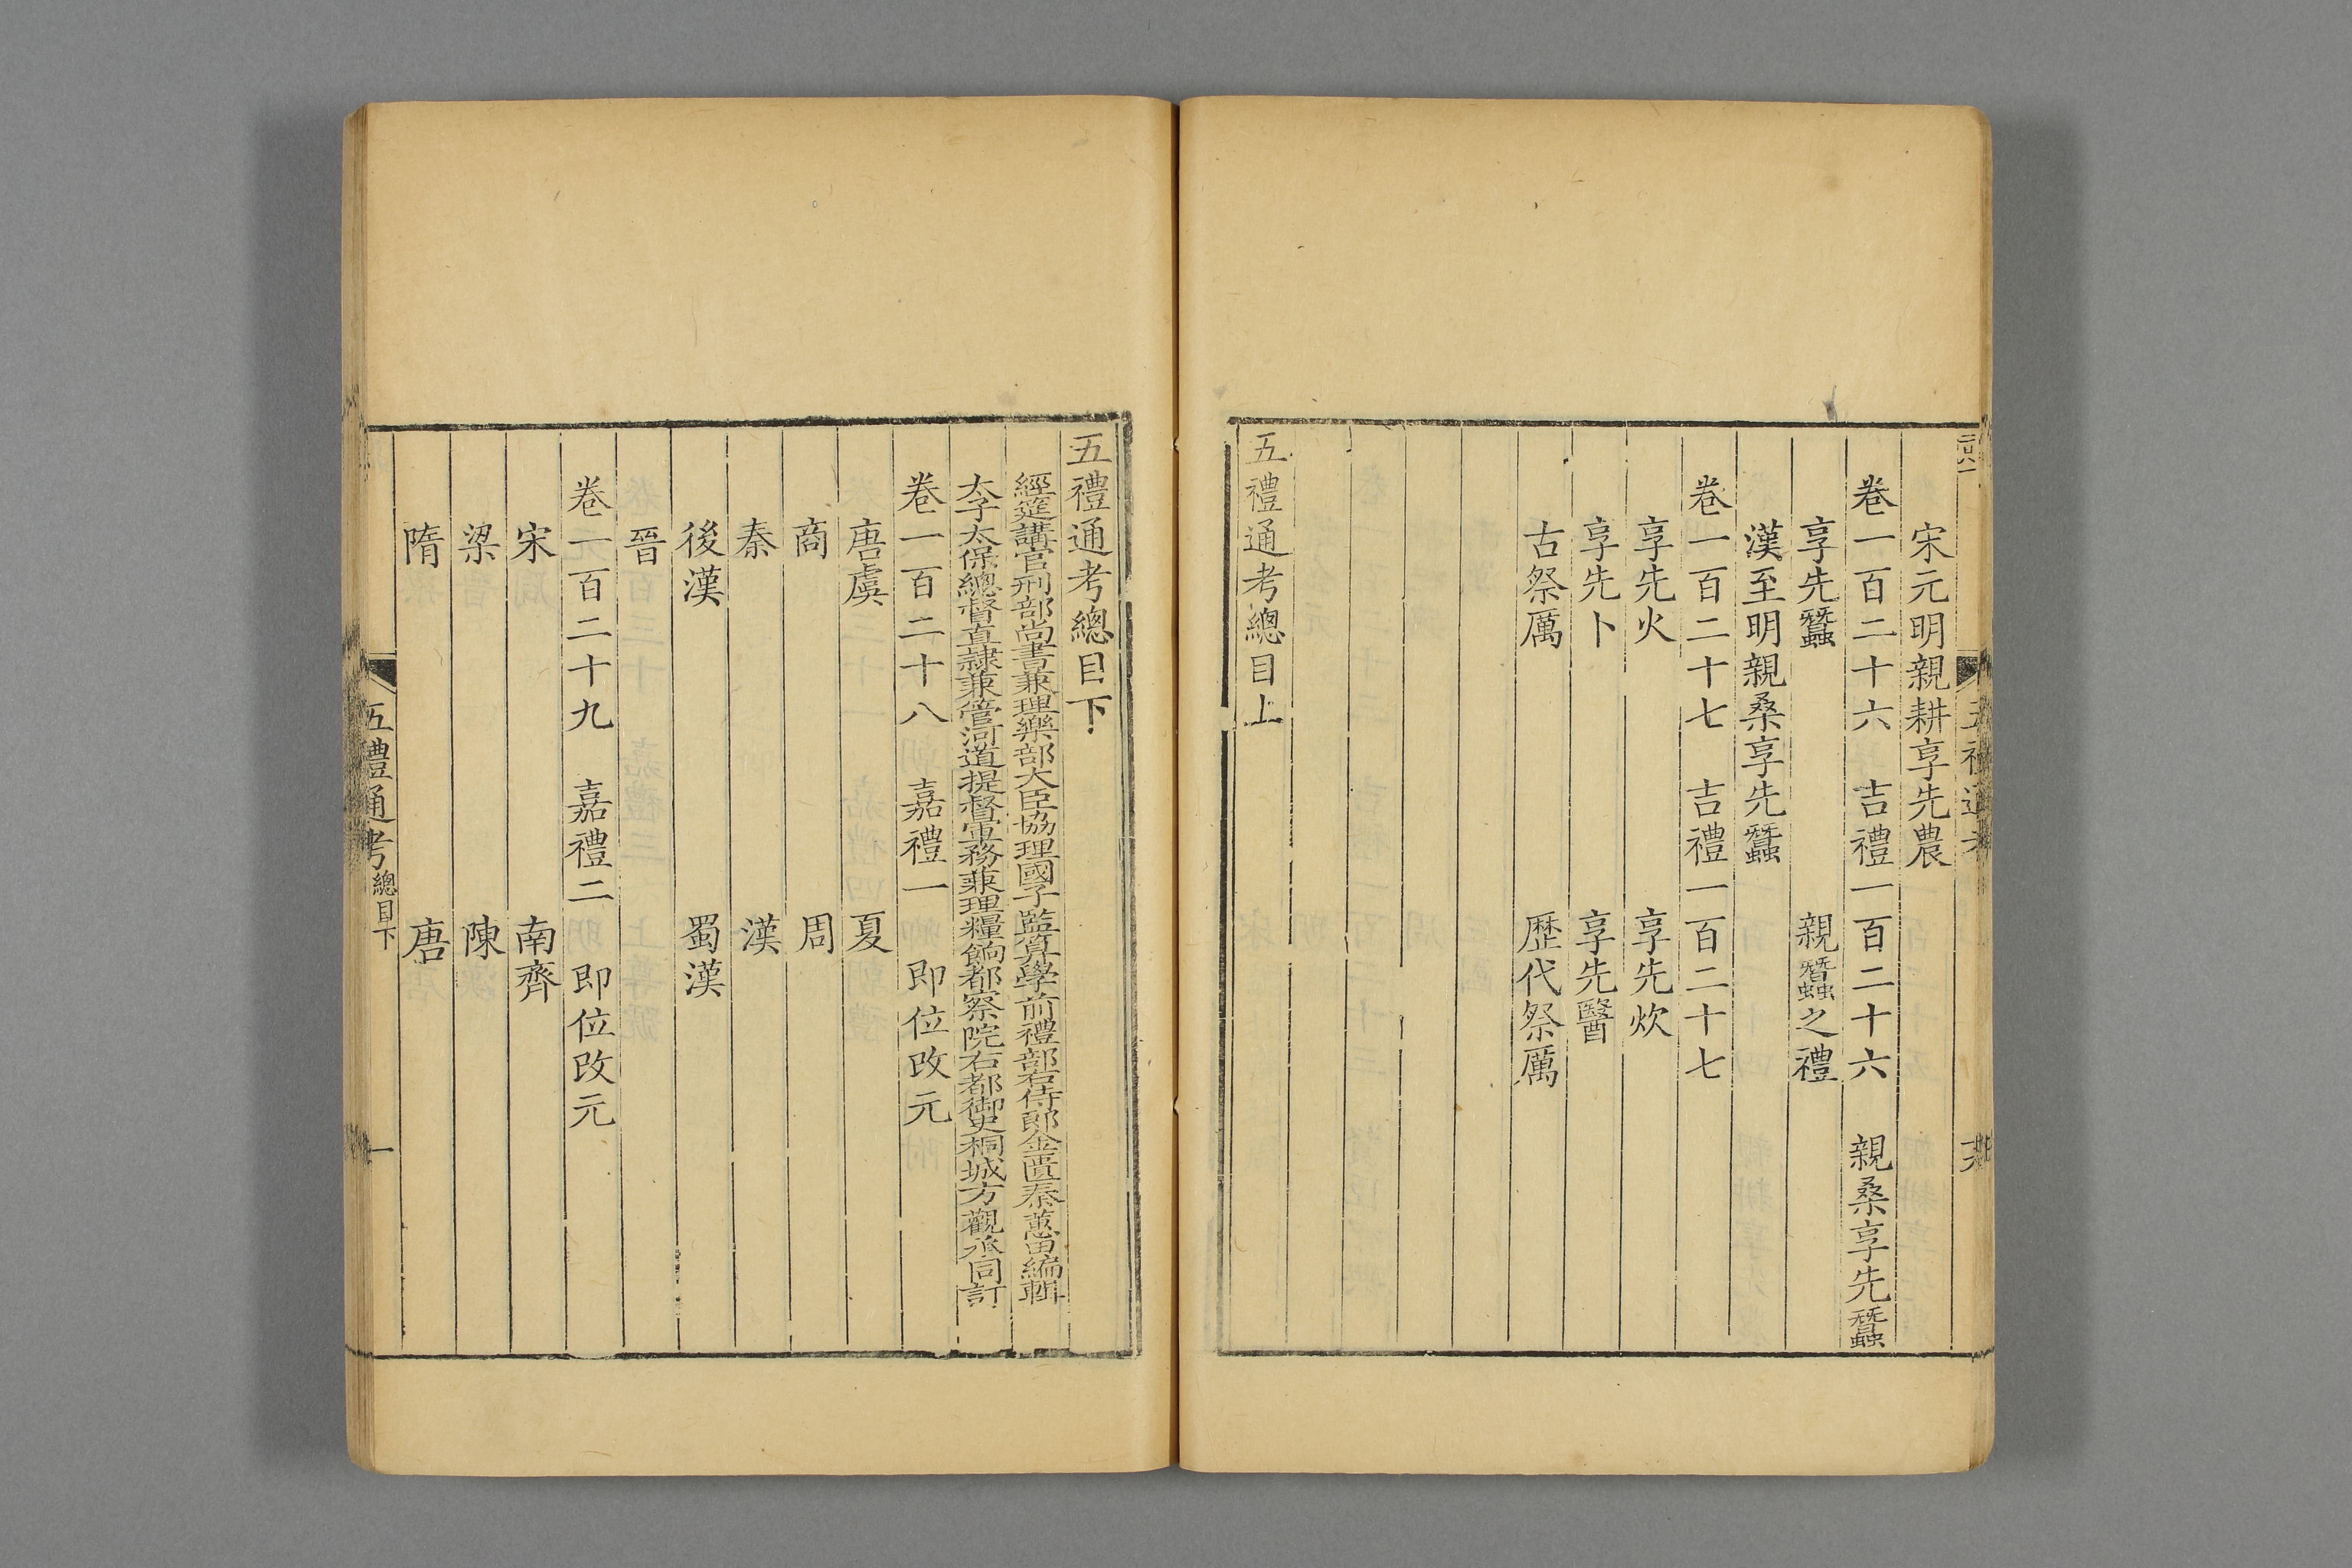 宋元明親耕享先農
卷一百二十六　吉禮一百二十六　親桑享先蠶
享先蠶　親蠶之禮
漢至明親桑享先蠶
卷一百二十七　吉禮一百二十七
享先火　享先炊
享先卜　享先醫
古祭厲　歷代祭厲
五禮通考總目上
五禮通考總目下
經筵講官刑部尚書兼理樂部大臣協理國子監算學前禮部右侍郎金匱秦蕙田編輯
太子太保總督直隸兼管河道提督軍務兼理糧餉都察院右都御史桐城方觀承同訂
卷一百二十八　嘉禮一　即位改元
唐虞　夏
商　周
秦　漢
後漢　蜀漢
晉
卷一百二十九　嘉禮二　即位改元
宋　南齊
梁　陳
隋　唐
五禮通考總目下　一